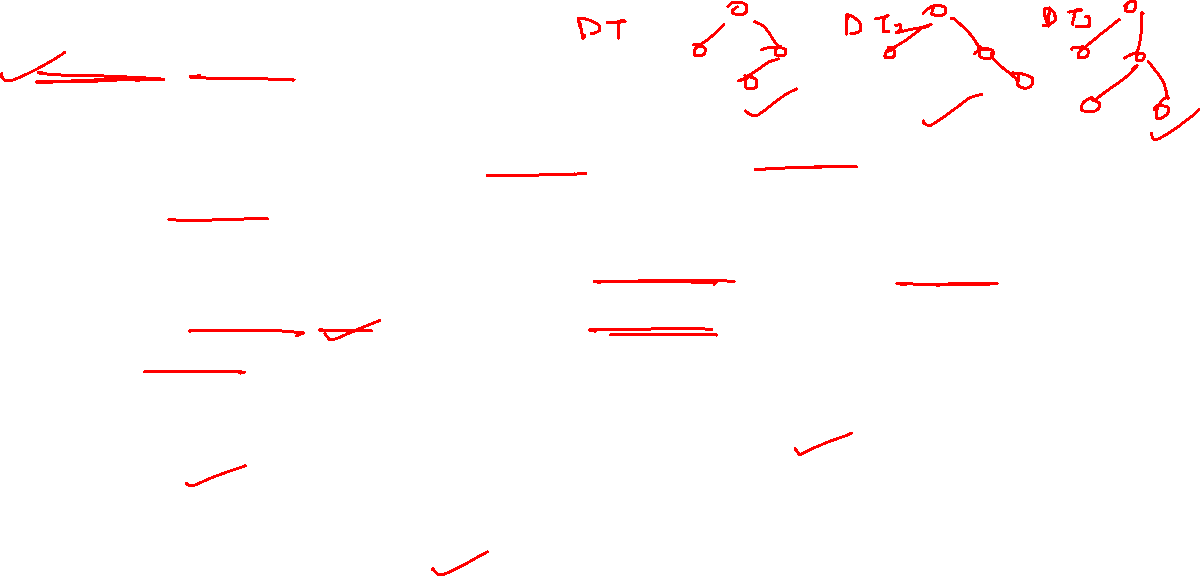 DT DT2 DT3